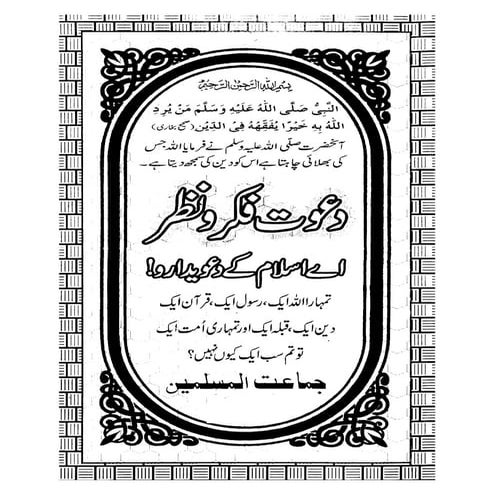 بسم اللہ الرحمن الرحیم
النبی صلی اللہ علیہ وسلم من یرد
اللہ بہ خیرا یفقھہ فی الدین (صحیح بخاری)
آنحضرت صلی اللہ علیہ وسلم نے فرمایا اللہ جس
کی بھلائی چاہتا ہے اس کو دین کی سمجھ دیتا ہے۔
دعوت فکر و نظر
اے اسلام کے دعویدارو!
تمہارا اللہ ایک، رسول ایک، قرآن ایک
دین ایک، قبلہ ایک اور تمہاری اُمت ایک
تو تم سب ایک کیوں نہیں؟
جماعت المسلمین